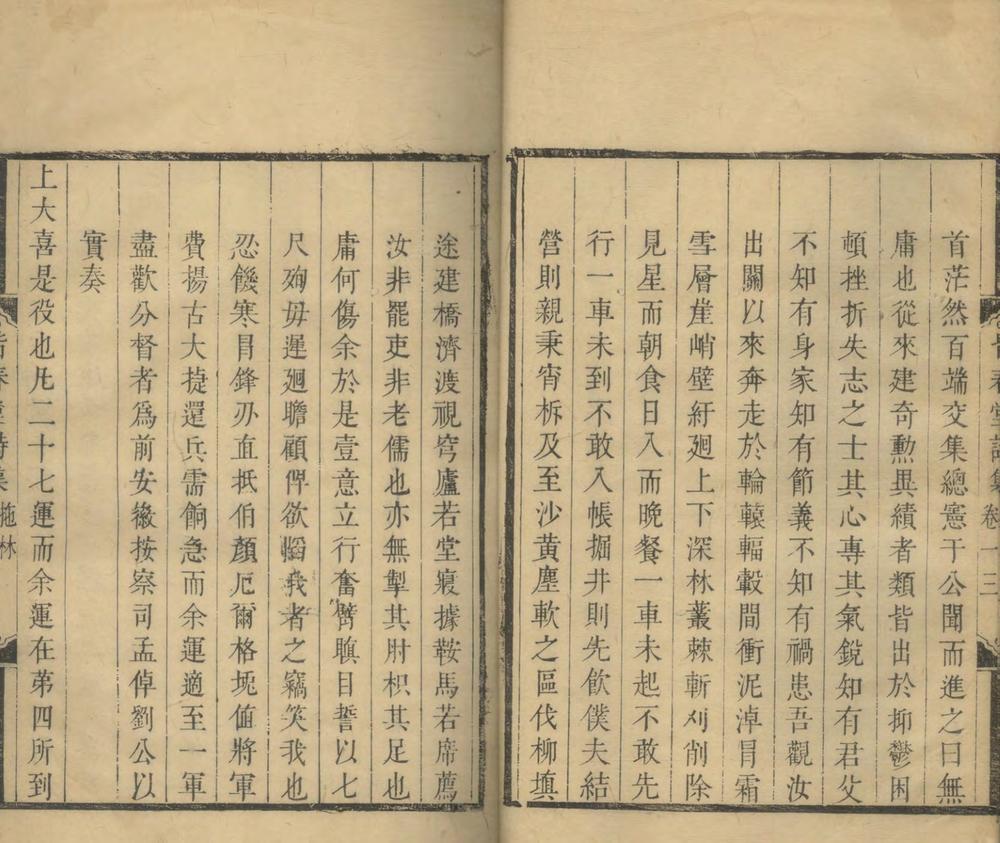 首茫然百端交集總憲于公聞而進之曰無
庸也從來建奇勳異績者類皆出於抑鬱困
頓挫折失志之士其心專其氣銳知有君父
不知有身家知有節義不知有禍患吾觀汝
出關以來奔走於輪轅輻轂間衝泥淖冒霜
雪層崖峭壁紆廻上下深林叢棘斬刈削除
見星而朝食日入而晚餐一車未起不敢先
行一車未到不敢入帳掘井則先飲僕夫結
營則親秉宵柝及至沙黃塵軟之區伐柳塡
途建橋濟渡視穹廬若堂寢據鞍馬若席薦
汝非罷吏非老儒也亦無掣其肘枳其足也
庸何傷余於是壹意立行奮臂瞋目誓以七
尺殉毋遲廻瞻顧俾欲慆我者之竊笑我也
忍饑寒冒鋒刃直抵伯顏厄爾格垅值將軍
費揚古大捷還兵需餉急而余運適至一軍
盡歡分督者爲前安徽按察司孟倬劉公以
實奏
上大喜是役也凡二十七運而余運在第四所到
春堂詩集 卷一 三
春堂詩集 拖林